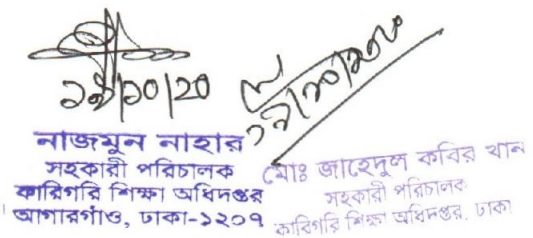 ২৯/১০/২০
নাজমুন নাহার
সহকারী পরিচালক
কারিগরি শিক্ষা অধিদপ্তর
আগারগাঁও, ঢাকা-১২০৭
মোঃ জাহেদুল কবির খান
সহকারী পরিচালক
কারিগরি শিক্ষা অধিদপ্তর, ঢাকা